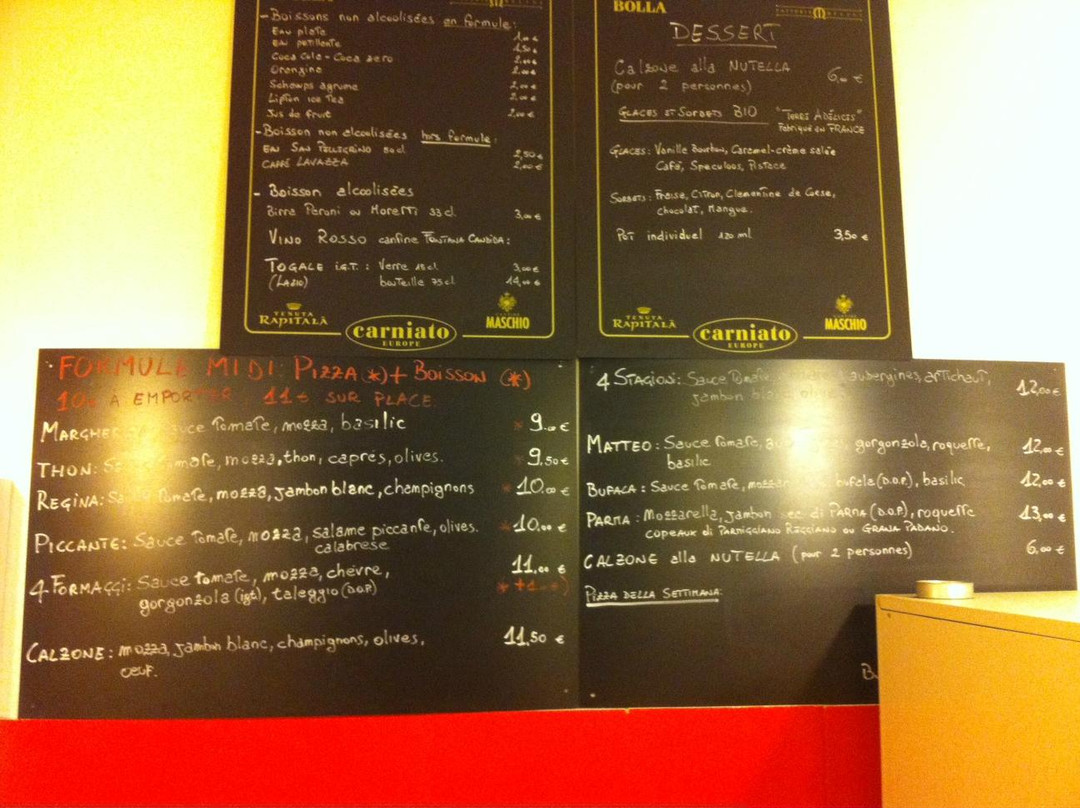 - Boissons non alcoolisées en formule:
Eau plate 1,00 €
Eau petillante 1,50 €
Coca Cola - Coca zero 2,00 €
Orangina 2,00 €
Schewps agrume 2,00 €
Lipton ice Tea 2,00 €
Jus de fruit 2,00 €
- Boisson non alcoolisées hors formule:
Eau San Pellegrino 50cl 2,50 €
Caffè LAVAZZA 2,00 €
- Boisson alcoolisées
Birra Peroni ou Moretti 33 cl. 3,00 €
VINO ROSSO cantine FONTANA CANDIDA:
TOGALE I.G.T.: Verre 15cl 3,00 €
(LAZIO) bouteille 75cl 14,00 €
TENUTA
RAPITALÀ
carniato
EUROPE
MASCHIO
BOLLA
DESSERT
Calzone alla NUTELLA 6,00 €
(pour 2 personnes)
GLACES ET SORBETS BIO "TERRE ADÉLICES"
Fabriqué en FRANCE
GLACES: Vanille Bourbon, Caramel-crème salée
Café, Speculoos, Pistace
SORBETS: Fraise, Citron, Clementine de Corse,
chocolat, Mangue.
Pot individuel 120 ml 3,50 €
TENUTA
RAPITALÀ
carniato
EUROPE
MASCHIO
FORMULE MIDI: PIZZA (*) + BOISSON (*)
10€ A EMPORTER 11€ SUR PLACE
MARGHERITA: Sauce Tomate, mozza, basilic * 9.00 €
THON: Sauce Tomate, mozza, thon, capres, olives. * 9,50 €
REGINA: Sauce Tomate, mozza, jambon blanc, champignons * 10.00 €
PICCANTE: Sauce Tomate, mozza, salame piccante, olives. * 10,00 €
calabrese
4 FORMAGGI: Sauce tomate, mozza, chevre, 11,00 €
gorgonzola (igt), taleggio (DOP) (* +1.00 €)
CALZONE: mozza, jambon blanc, champignons, olives, 11,50 €
oeuf.
4 STAGIONI: Sauce Tomate, aubergines, artichaut, 12,00 €
jambon blanc, olives
MATTEO: Sauce Tomate, gorgonzola, roquette, 12,00 €
basilic
BUFALA: Sauce Tomate, bufala (D.O.P.), basilic 12,00 €
PARMA: Mozzarella, jambon sec di PARMA (D.O.P.), roquette 13,00 €
copeaux di PARMIGGIANO REGGIANO ou GRANA PADANO.
CALZONE alla NUTELLA (pour 2 personnes) 6,00 €
PIZZA DELLA SETTIMANA: